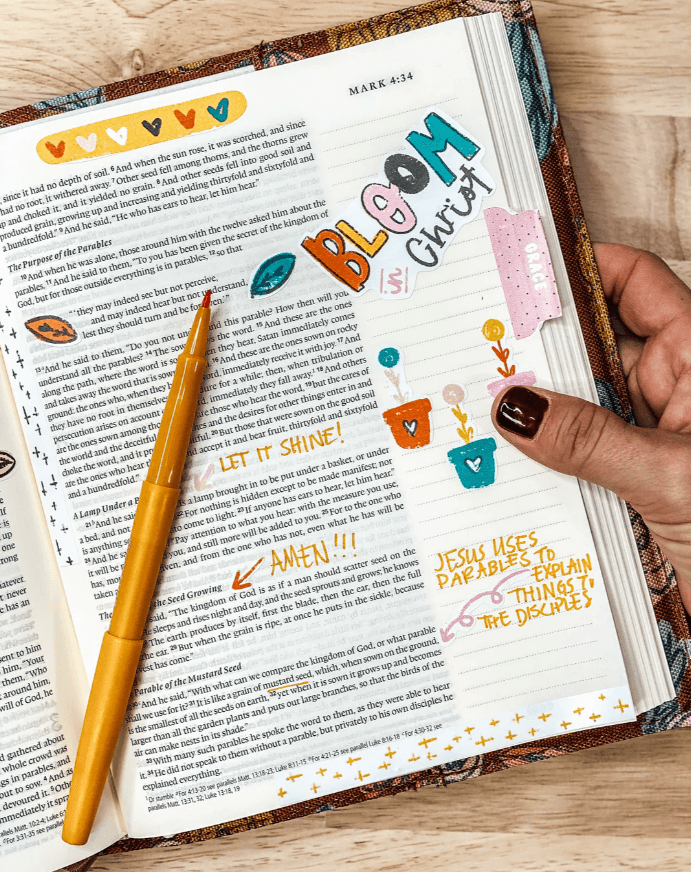 MARK 4:34
since it had no depth of soil. 6 And when the sun rose, it was scorched, and since
had no root, it withered away. 7 Other seed fell among thorns, and the thorns grew
up and choked it, and it yielded no grain. 8 And other seeds fell into good soil and
produced grain, growing up and increasing and yielding thirtyfold and sixtyfold and
a hundredfold." 9 And he said, "He who has ears to hear, let him hear."
The Purpose of the Parables
10 And when he was alone, those around him with the twelve asked him about the
parables. 11 And he said to them, "To you has been given the secret of the kingdom of
God, but for those outside everything is in parables, 12 so that
"'they may indeed see but not perceive,
and may indeed hear but not understand,
lest they should turn and be forgiven.'"
13 And he said to them, "Do you not understand this parable? How then will you
understand all the parables? 14 The sower sows the word. 15 And these are the ones
along the path, where the word is sown: when they hear, Satan immediately comes
and takes away the word that is sown in them. 16 And these are the ones sown on rocky
ground: the ones who, when they hear the word, immediately receive it with joy. 17 And
they have no root in themselves, but endure for a while; then, when tribulation or
persecution arises on account of the word, immediately they fall away. 18 And others
are the ones sown among thorns. They are those who hear the word, 19 but the cares of
the world and the deceitfulness of riches and the desires for other things enter in and
choke the word, and it proves unfruitful. 20 But those that were sown on the good soil
are the ones who hear the word and accept it and bear fruit, thirtyfold and sixtyfold
and a hundredfold."
LET IT SHINE!
A Lamp Under a B
21 And he said to them, "Is a lamp brought in to be put under a basket, or under
a bed, and not on a stand? 22 For nothing is hidden except to be made manifest; nor
is anything secret except to come to light. 23 If anyone has ears to hear, let him hear."
24 And he said to them, "Pay attention to what you hear: with the measure you use,
it will be measured to you, and still more will be added to you. 25 For to the one who
has, more will be given, and from the one who has not, even what he has will be
taken away."
AMEN!!!
the Seed Growing
said, "The kingdom of God is as if a man should scatter seed on the
He sleeps and rises night and day, and the seed sprouts and grows; he knows
The earth produces by itself, first the blade, then the ear, then the full
the ear. 29 But when the grain is ripe, at once he puts in the sickle, because
vest has come."
Parable of the Mustard Seed
30 And he said, "With what can we compare the kingdom of God, or what parable
shall we use for it? 31 It is like a grain of mustard seed, which, when sown on the ground,
is the smallest of all the seeds on earth, 32 yet when it is sown it grows up and becomes
larger than all the garden plants and puts out large branches, so that the birds of the
air can make nests in its shade."
33 With many such parables he spoke the word to them, as they were able to hear
it. 34 He did not speak to them without a parable, but privately to his own disciples he
explained everything.
1 Or stumble
BLOOM
in
Christ
GRACE
JESUS USES
PARABLES TO
EXPLAIN
THINGS TO
THE DISCIPLES